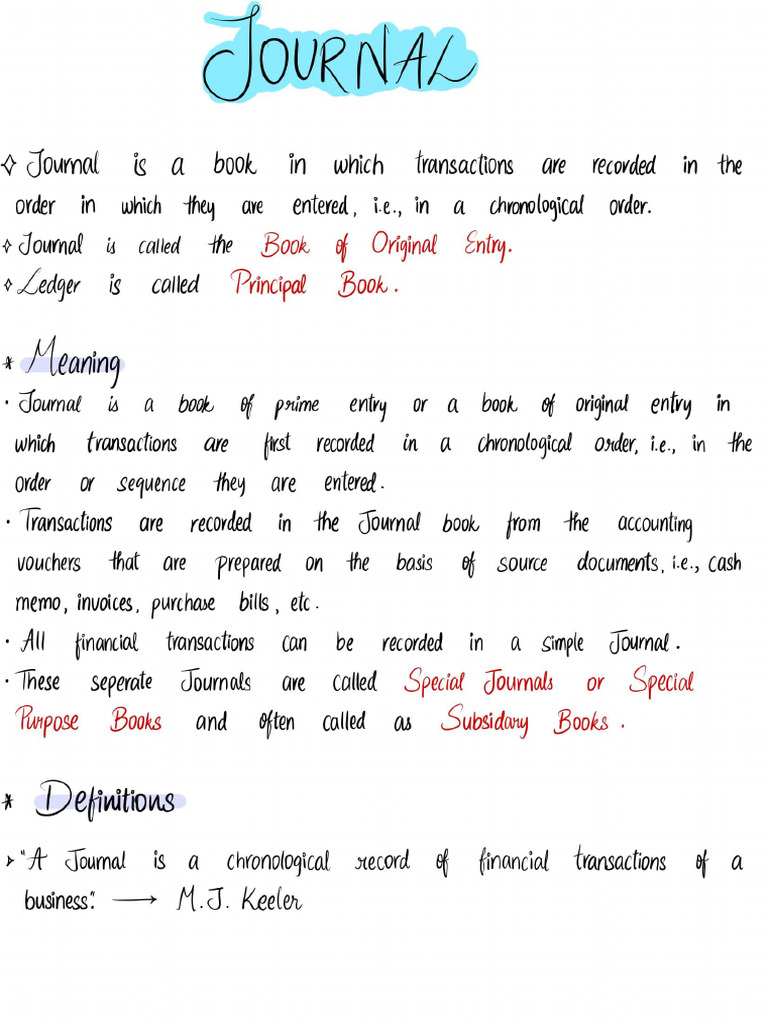 JOURNAL
✧ Journal is a book in which transactions are recorded in the
order in which they are entered, i.e., in a chronological order.
✧ Journal is called the Book of Original Entry.
✧ Ledger is called Principal Book.
* Meaning
· Journal is a book of prime entry or a book of original entry in
which transactions are first recorded in a chronological order, i.e., in the
order or sequence they are entered.
· Transactions are recorded in the Journal book from the accounting
vouchers that are prepared on the basis of source documents, i.e., cash
memo, invoices, purchase bills, etc.
· All financial transactions can be recorded in a simple Journal.
· These seperate Journals are called Special Journals or Special
Purpose Books and often called as Subsidary Books.
* Definitions
➢ "A Journal is a chronological record of financial transactions of a
business". ⟶ M.J. Keeler